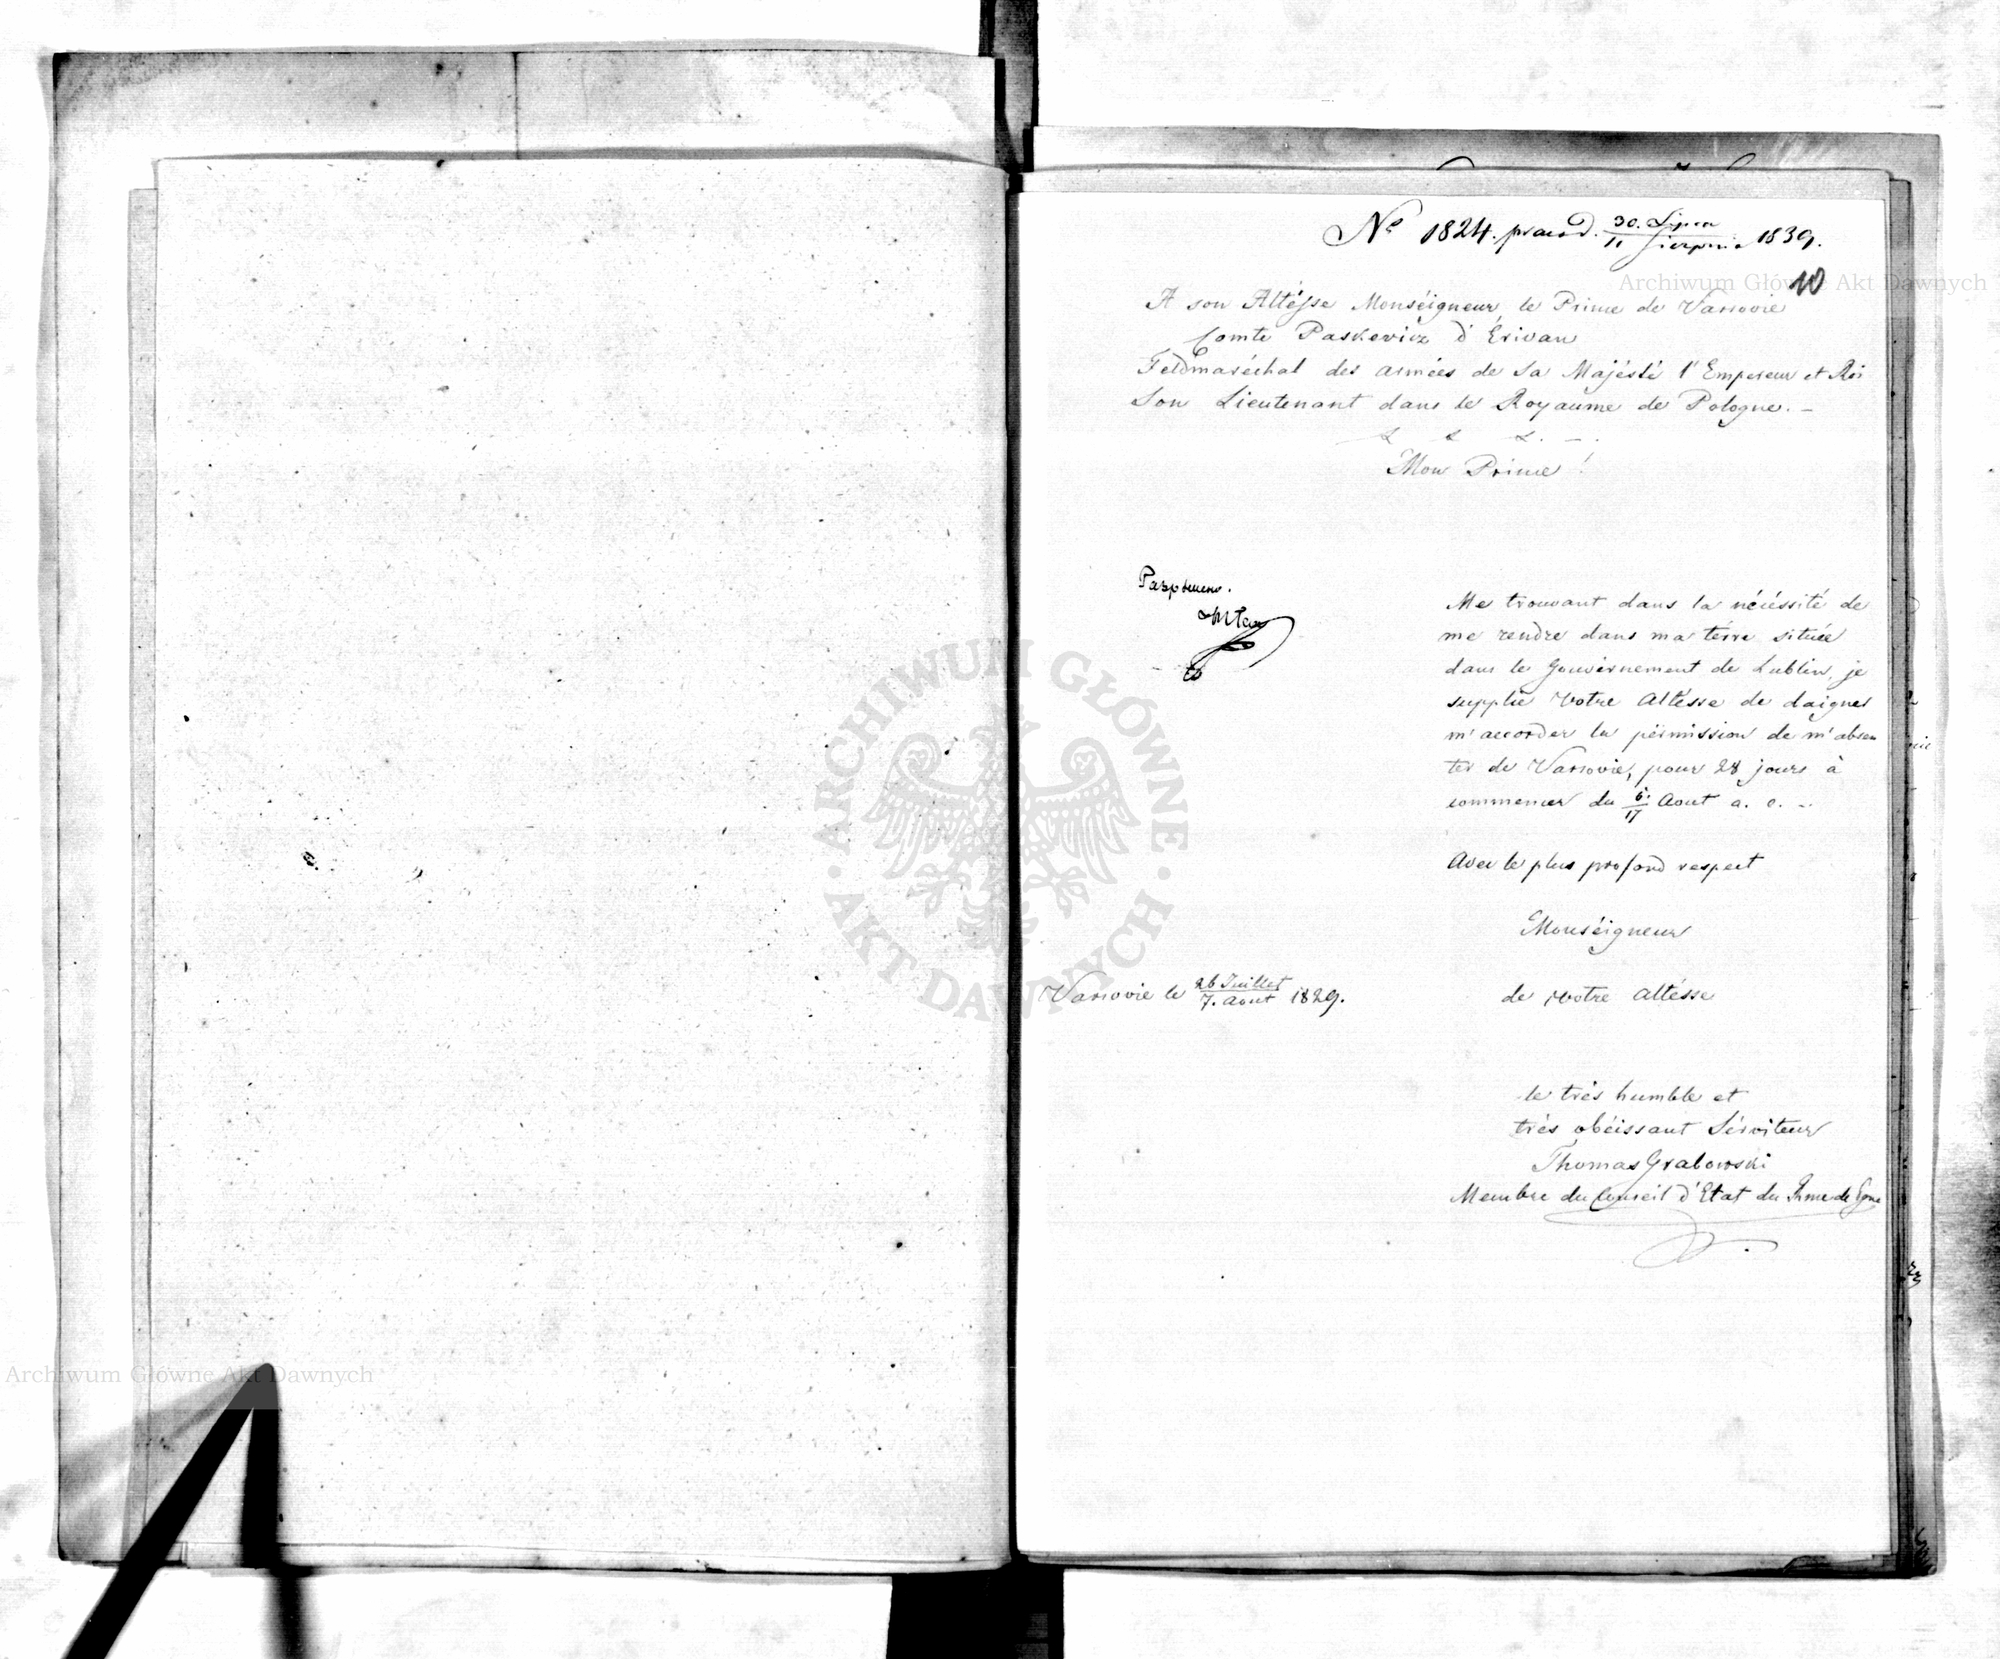 Nº 1824. praes d. 30. Lipca / 11 Sierpnia 1839.
10
A son Altésse Monséigneur, le Prince de Varsovie
Comte Paskevicz d'Erivan
Feldmaréchal des armées de Sa Majésté l'Empereur et Roi
Son Lieutenant dans le Royaume de Pologne. –
& & &. – .
Mon Prince !
Разрешено.
Me trouvant dans la nécéssité de
me rendre dans ma térre située
dans le Gouvérnement de Lublin, je
supplie Votre Altésse de daigner
m'accorder la pérmission de m'absen
ter de Varsovie, pour 28 jours à
commencer du 5/17 Aout a. c. –
Avec le plus profond respect
Monséigneur
Varsovie le 26 Juillet / 7. Aout 1829.
de Votre Altésse
le trés humble et
trés obéissant Sérviteur
Thomas Grabowski
Membre du Conseil d'Etat du Rme de Pgne
ARCHIWUM GŁÓWNE AKT DAWNYCH
Archiwum Główne Akt Dawnych
Archiwum Główne Akt Dawnych